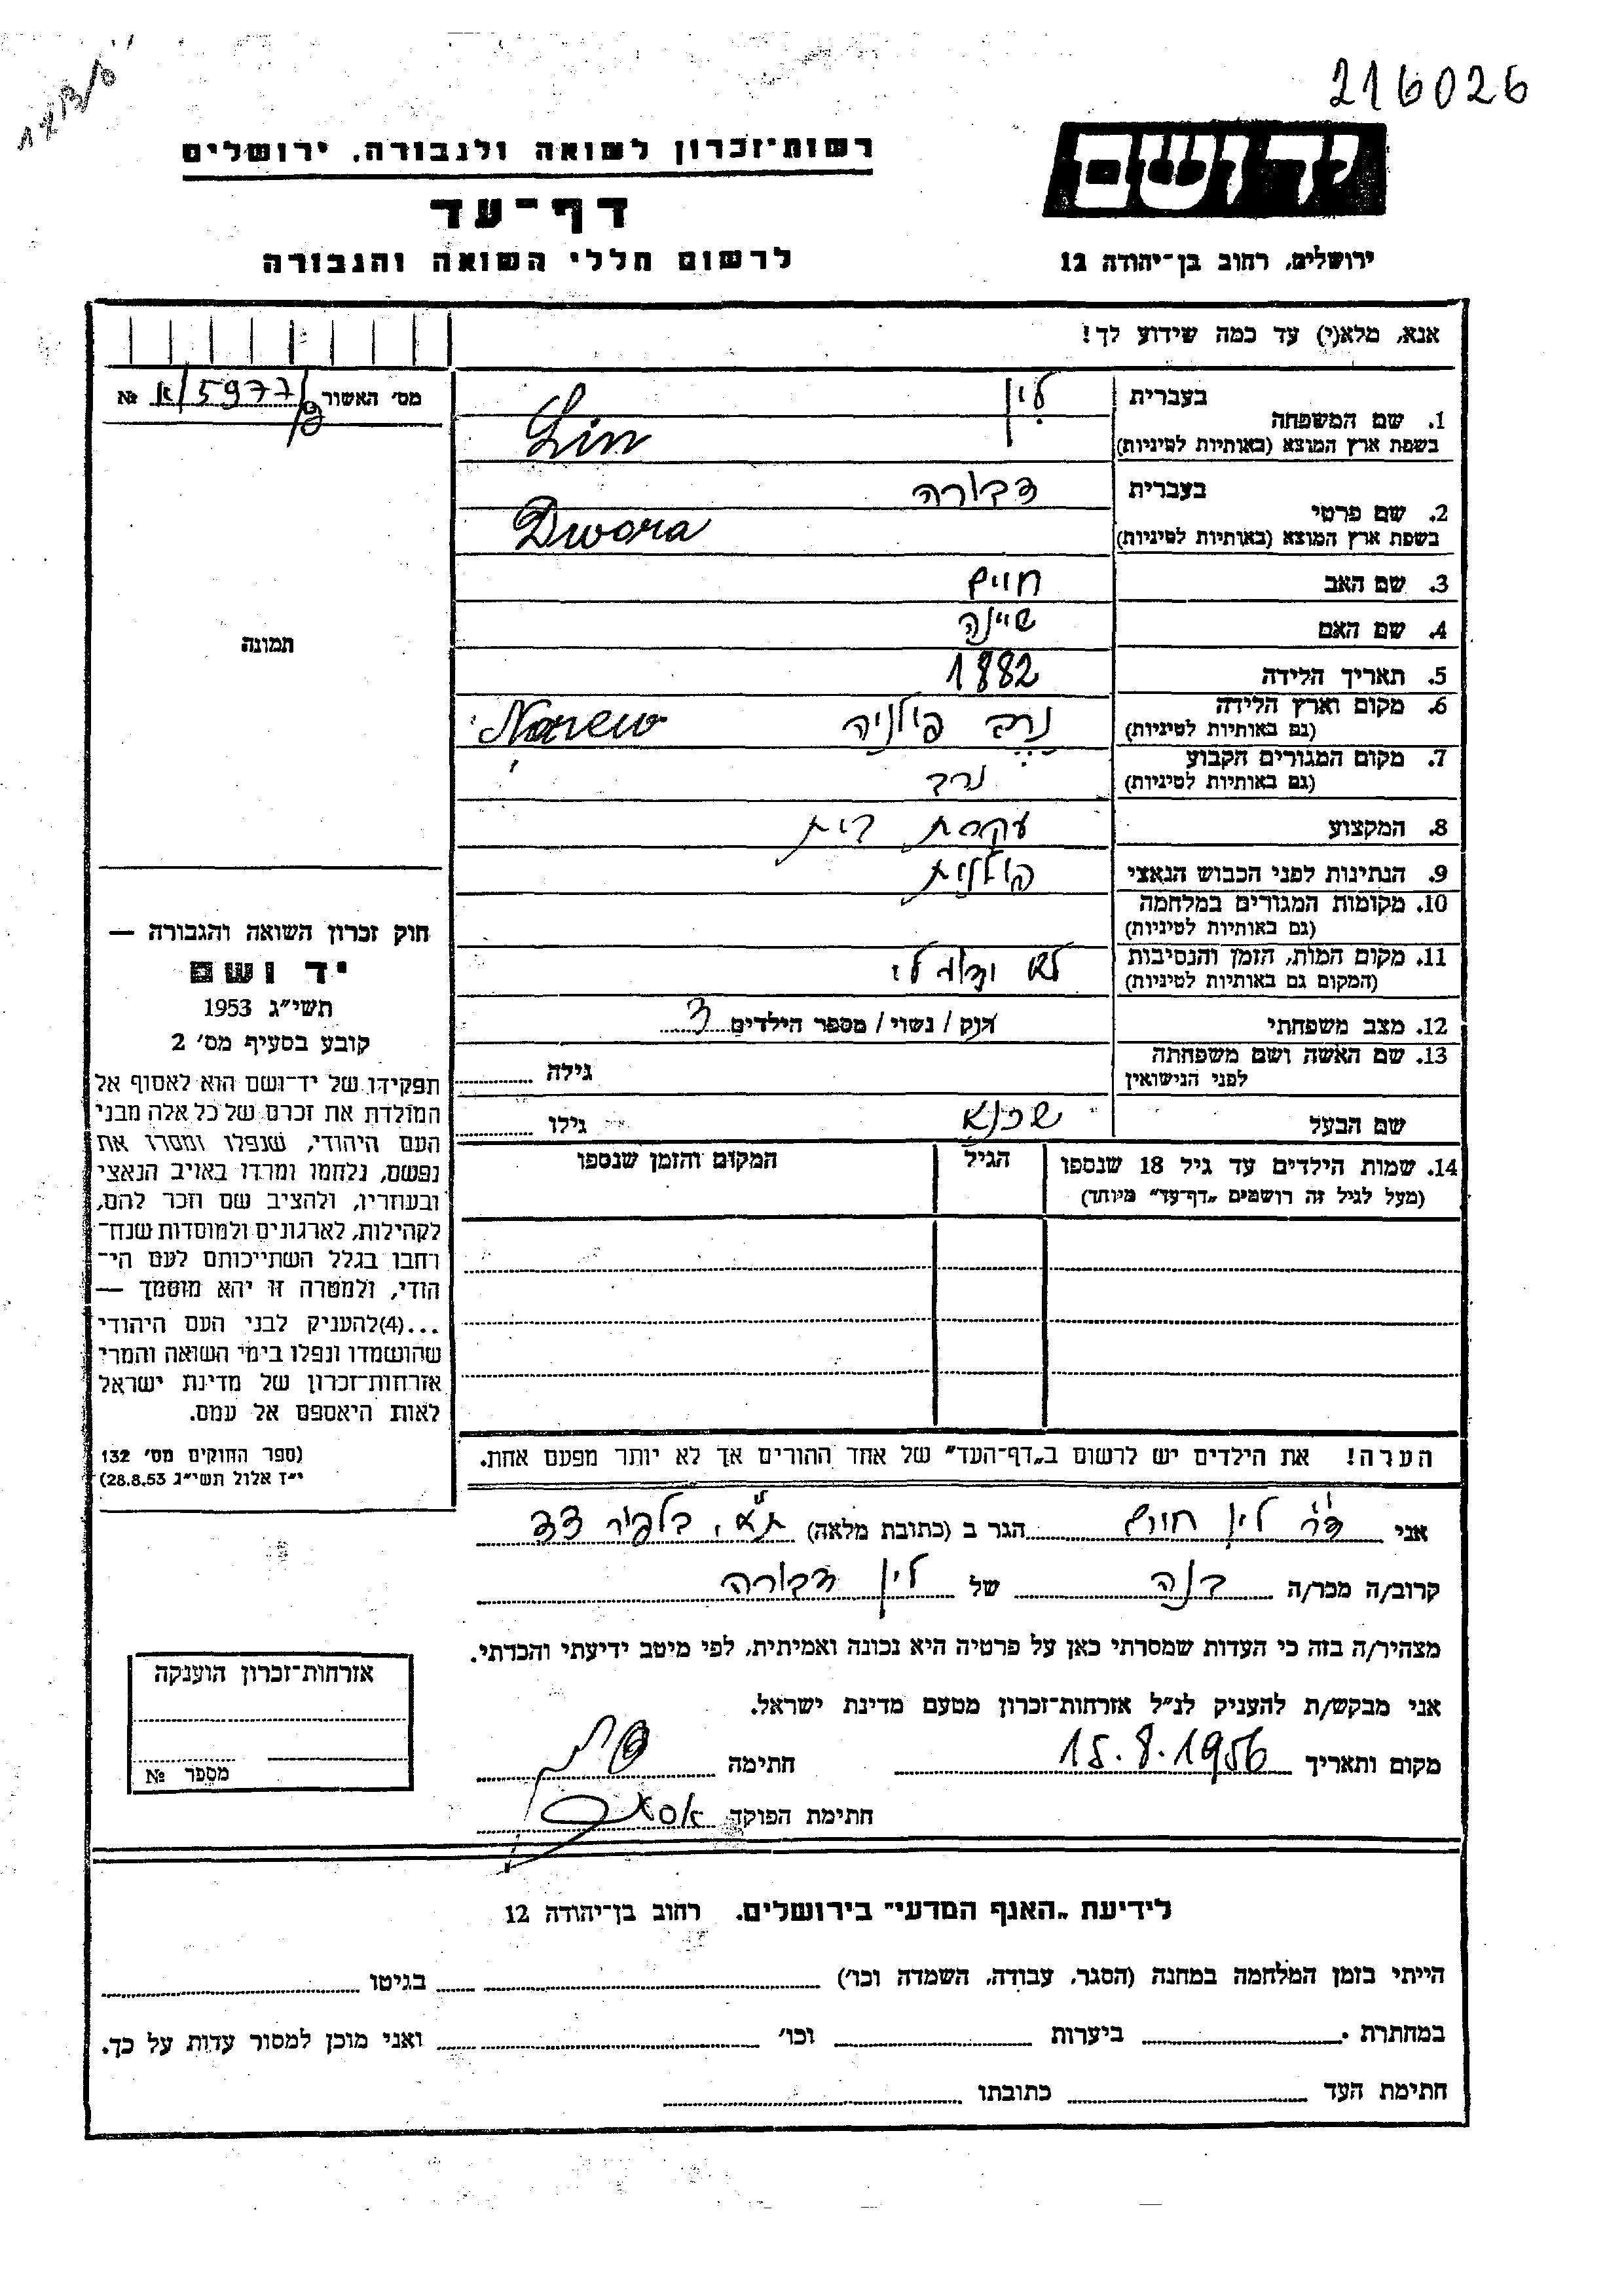 216026
יד ושם
רשות־זכרון לשואה ולגבורה, ירושלים
דף־עד
ירושלים, רחוב בן־יהודה 12
לרשום חללי השואה והגבורה
אנא, מלא(י) עד כמה שידוע לך!
מס׳ האשור 5977/א №
1. שם המשפחה
בעברית לין
בשפת ארץ המוצא (באותיות לטיניות) Lin
2. שם פרטי
בעברית דבורה
בשפת ארץ המוצא (באותיות לטיניות) Dwora
3. שם האב חיים
4. שם האם שיינה
5. תאריך הלידה 1882
6. מקום וארץ הלידה
(גם באותיות לטיניות) נרב פולניה Narew
7. מקום המגורים הקבוע
(גם באותיות לטיניות) נרב
8. המקצוע עקרת בית
9. הנתינות לפני הכבוש הנאצי פולנית
10. מקומות המגורים במלחמה
(גם באותיות לטיניות)
11. מקום המות, הזמן והנסיבות
(המקום גם באותיות לטיניות) לא ידוע לי
12. מצב משפחתי רוק / נשוי / מספר הילדים 3
13. שם האשה ושם משפחתה
לפני הנישואין גילה
שם הבעל שכנא גילו
14. שמות הילדים עד גיל 18 שנספו
(מעל לגיל זה רושמים „דף־עד״ מיוחד)
הגיל
המקום והזמן שנספו
הערה! את הילדים יש לרשום ב„דף־העד״ של אחד ההורים אך לא יותר מפעם אחת.
תמונה
חוק זכרון השואה והגבורה —
יד ושם
תשי״ג 1953
קובע בסעיף מס׳ 2
תפקידו של יד־ושם הוא לאסוף אל
המולדת את זכרם של כל אלה מבני
העם היהודי, שנפלו ומסרו את
נפשם, נלחמו ומרדו באויב הנאצי
ובעוזריו, ולהציב שם וזכר להם,
לקהילות, לארגונים ולמוסדות שנח־
רחבו בגלל השתייכותם לעם הי־
הודי, ולמטרה זו יהא מוסמך —
...(4)להעניק לבני העם היהודי
שהושמדו ונפלו בימי השואה והמרי
אזרחות־זכרון של מדינת ישראל
לאות היאספם אל עמם.
(ספר החוקים מס׳ 132
י״ז אלול תשי״ג 28.8.53)
אני ד״ר לין חיים הגר ב (כתובת מלאה) ת״א, בלפור 33
קרוב/ה מכר/ה בנה של לין דבורה
מצהיר/ה בזה כי העדות שמסרתי כאן על פרטיה היא נכונה ואמיתית, לפי מיטב ידיעתי והכרתי.
אני מבקש/ת להעניק לנ״ל אזרחות־זכרון מטעם מדינת ישראל.
מקום ותאריך 15.8.1956 חתימה
חתימת הפוקד
אזרחות־זכרון הוענקה
מספר №
לידיעת „האגף המדעי״ בירושלים. רחוב בן־יהודה 12
הייתי בזמן המלחמה במחנה (הסגר, עבודה, השמדה וכו׳) בגיטו
במחתרת ביערות וכו׳ ואני מוכן למסור עדות על כך.
חתימת העד כתובתו